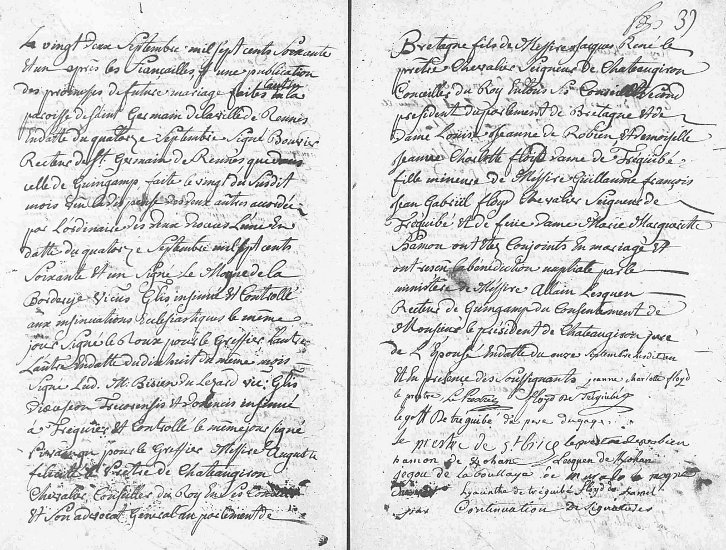 Le vingt deux Septembre mil Sept cents Soixante
et un apres les fiancailles et une publication
des promesses de future mariage faites en la
paroisse de Saint Germain de la ville de Rennes
en datte du quatorze Septembre Signé Bouvier
Recteur de St Germain de Rennes que
celle de Guingamp faite le vingt du Susdit
mois deux autres accordée
par Lordinaire des deux Dioceses L'une En
datte du quatorze Septembre mil Sept cents
Soixante et un Signé Le Moyne de la
Borderye Vicaire Glis insinué et Controllé
aux insinuations Ecclesiastiques le même
jour Signé le Roux pour le Greffier
L'autre En datte du dix huit du même mois
Signé Lud. M. Bizien du Lezard vic. Glis
Dioeceseon Trecorensis et insinué
a Treguier et Controllé le même jour signé
pour le Greffier Messire Auguste
felicité le Prêtre de Chateaugiron
Chevalier Conseiller du Roy En Ses Conseils
et Son advocat General au parlement de
39
Bretagne fils de Messire Jacques René le
prêtre Chevalier Seigneur De Chateaugiron
Conseiller du Roy En tous Ses Conseils Second
president du parlement de Bretagne et de
Dame Louise Jeanne de Robien et Demoiselle
Jeanne Charlotte floyd dame de Treguibé
fille mineure de Messire Guillaume françois
Jean Gabriel floyd Chevalier Seigneur de
Treguibé et de feüe Dame Marie Marguerite
Hamon ont Eté Conjoints En mariage et
ont reçu la benediction nuptiale par le
ministère de Messire Allain Lesquen
Recteur de Guingamp du Consentement de
Monsieur le president de Chateaugiron pere
de L'Epousé En datte du onze Septembre
et En presence des Soussignants jeanne charlotte floyd
le pretre floyd de Treguibé
De treguibé
le prestre de st brice de robien
hamon de Lesquen de
jegou de la boullaye
hyacinthe de treguibé floyd
pas Continuation de Signatures